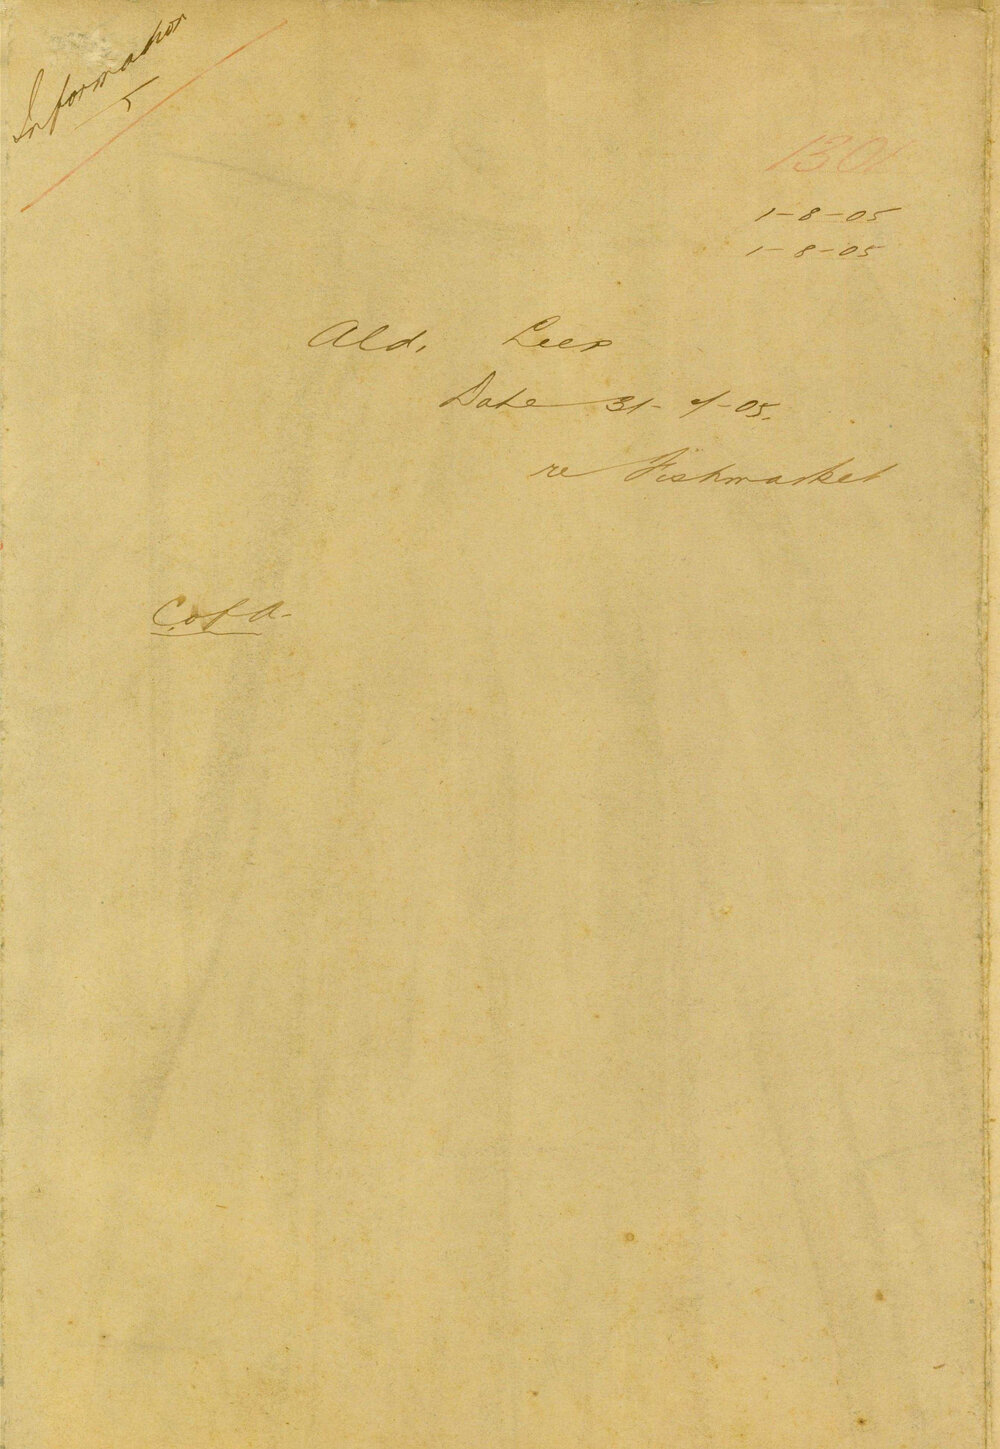 Information
5
1301
1-8-05
1-8-05
Ald. Lees
Date 31-7-05.
re Fishmarket
C. of A.